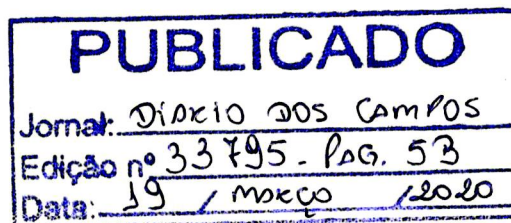 PUBLICADO
Jornal: DIÁRIO DOS CAMPOS
Edição nº 33795 - PAG. 5B
Data: 19 / MARÇO / 2020